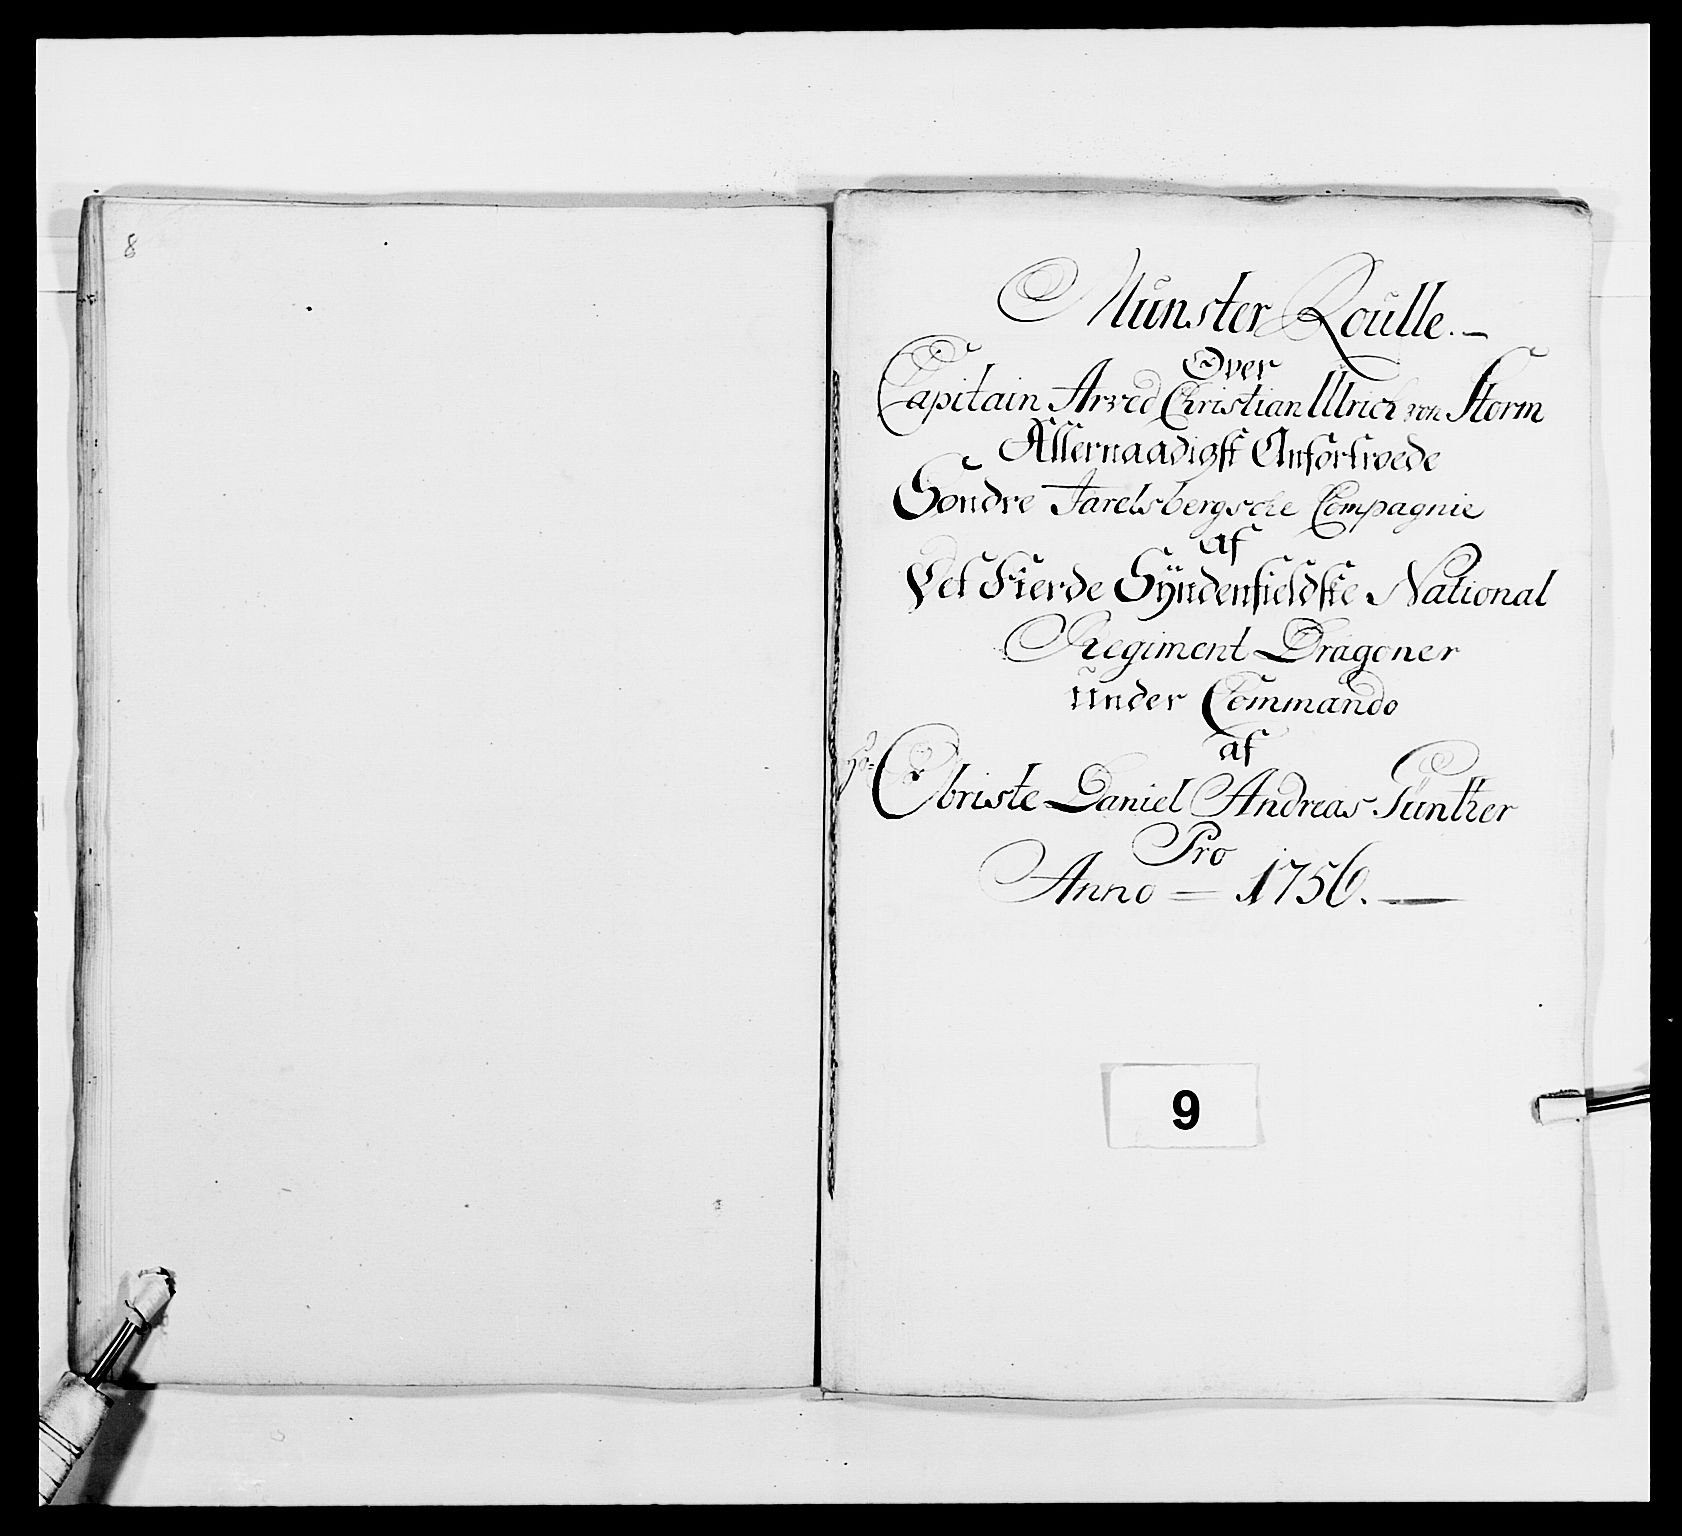 8
Munster Roulle.
Over
Capitain Arved Christian Ulrich von Storm
Allernaadigst Anfortroede
Søndre Jarelsbergsche Compagnie
af
Det Fierde Syndenfieldske National
Regiment Dragoner
Under Commando
af
Obriste Daniel Andreas Günther
Pro
Anno = 1756.
9